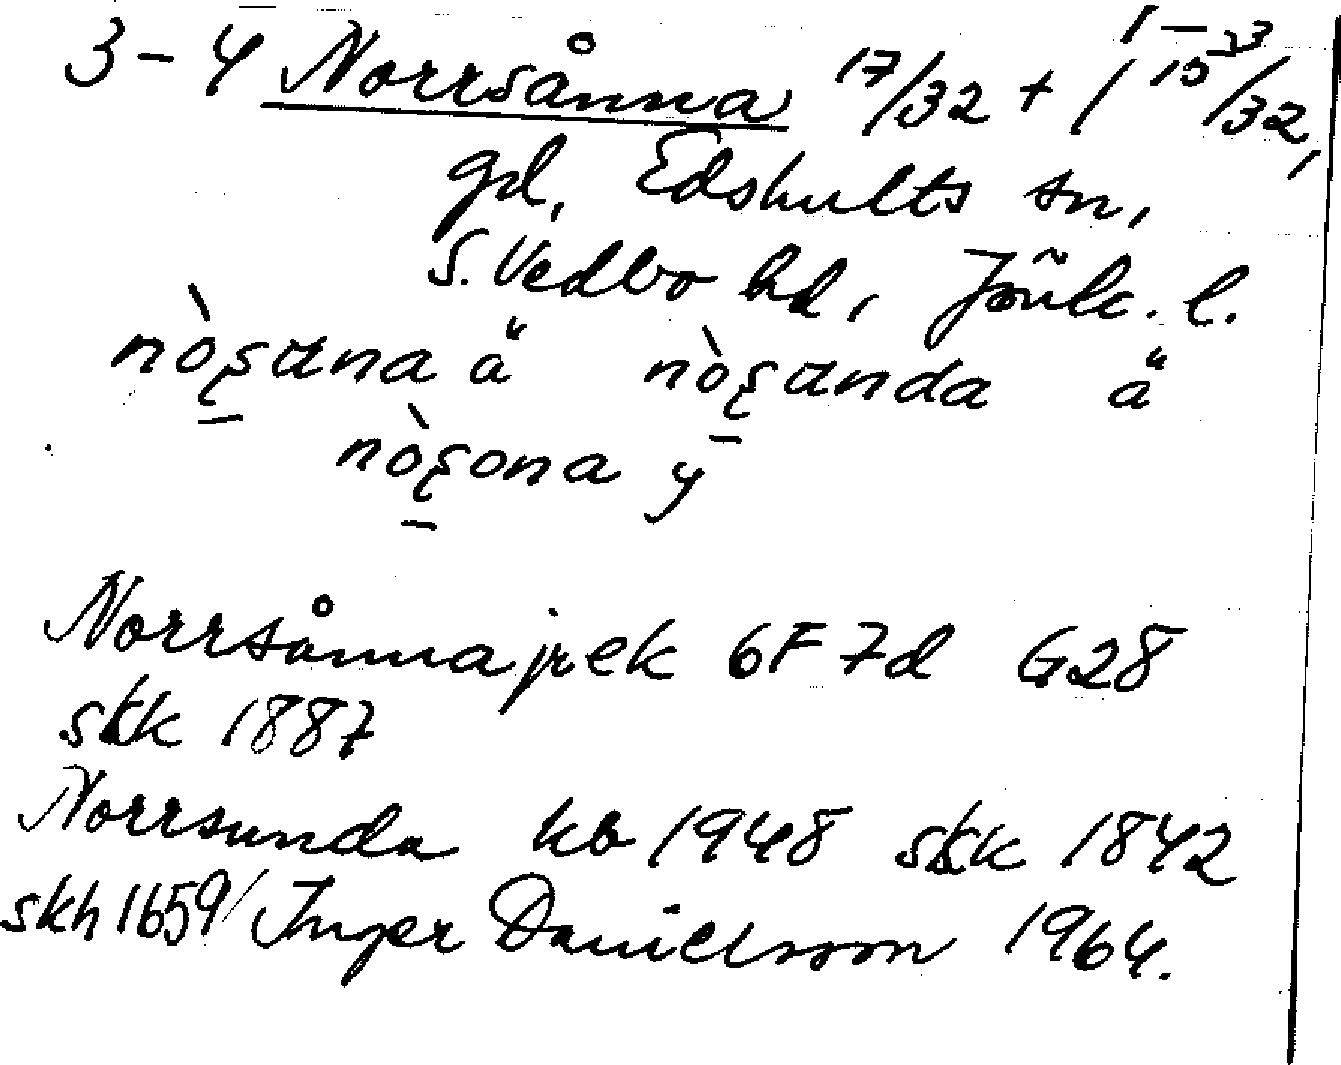 1–3
3–4 Norrsånna 17/32 + 1 15/32,
gd, Edshults sn,
S. Vedbo hd, Jönk. l.
nòʂana ä nòʂanda ä
nòʂona y
Norrsånna jrek 6F 7d G28
skk 1887
Norrsunda kb 1948 skk 1842
skh 1659/ Inger Danielsson 1964.